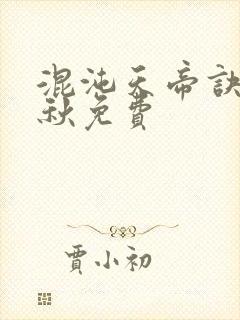 混沌天帝訣
秋免費
賈小初